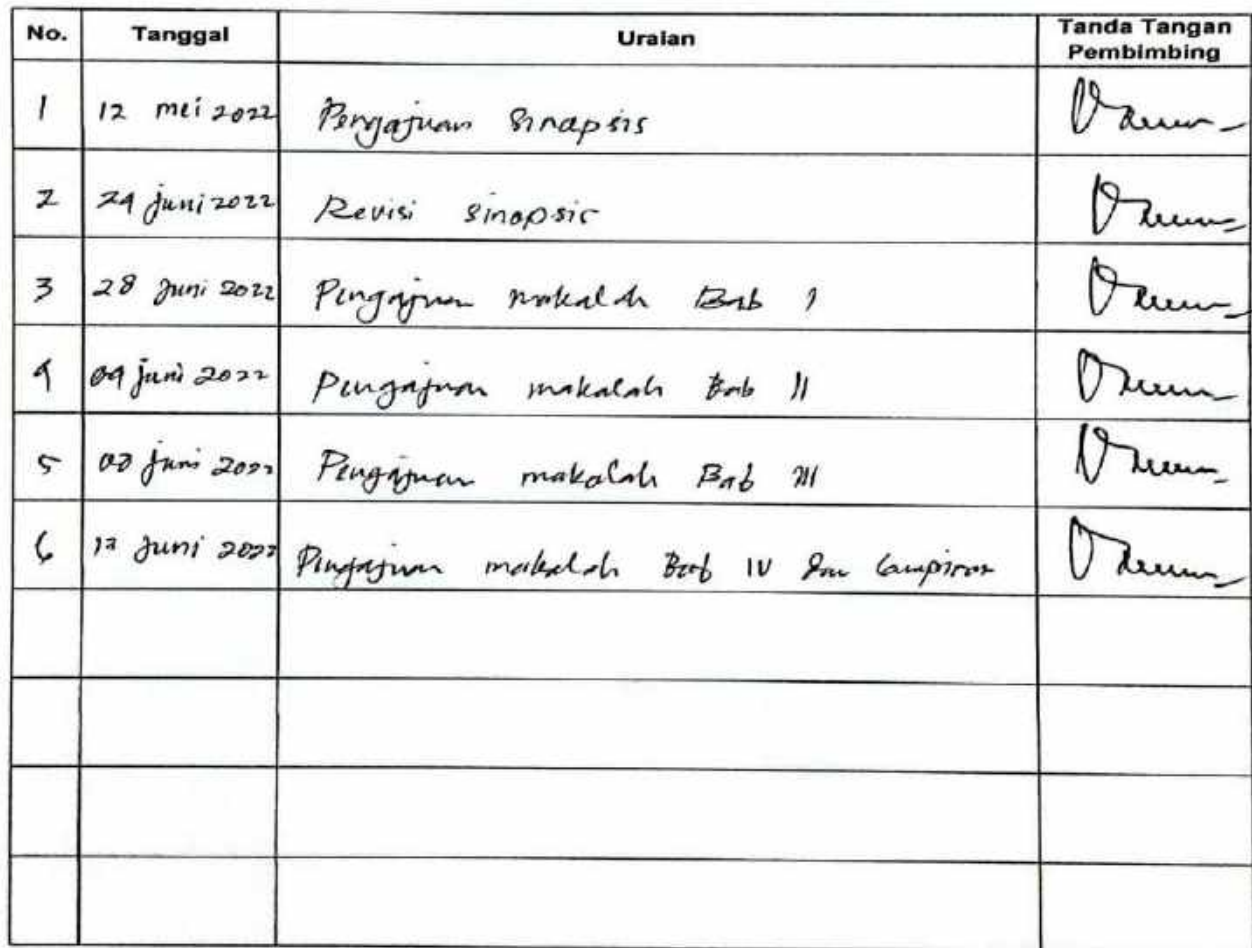 No. Tanggal Uraian Tanda Tangan Pembimbing
1 12 mei 2022 Pengajuan Sinapsis
2 24 juni 2022 Revisi sinopsis
3 28 Juni 2022 Pengajuan makalah Bab I
4 juni 2022 Pengajuan makalah Bab II
5 juni 2022 Pengajuan makalah Bab III
6 Juni 2022 Pengajuan makalah Bab IV dan Lampiran